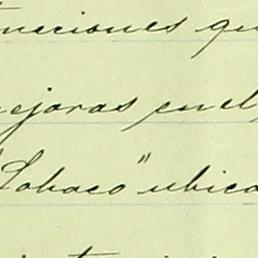 naciones qu
ejoras en el
"Lobaco" ubica